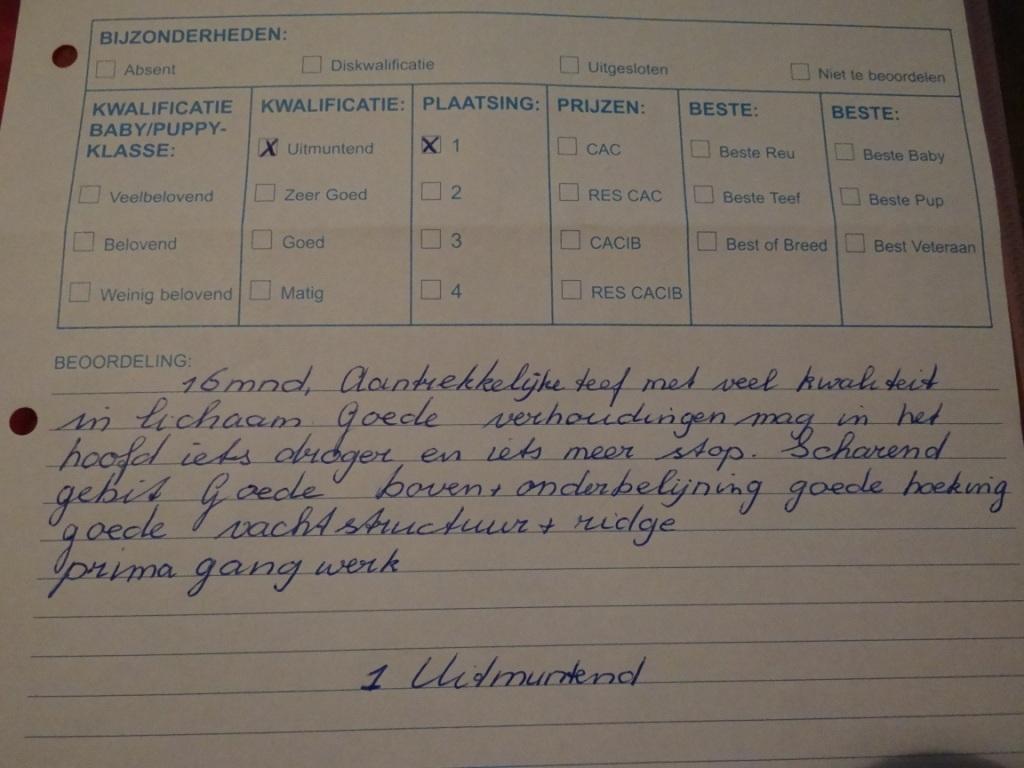 BIJZONDERHEDEN:
Absent Diskwalificatie Uitgesloten Niet te beoordelen
KWALIFICATIE BABY/PUPPY-KLASSE:
Veelbelovend
Belovend
Weinig belovend
KWALIFICATIE:
X Uitmuntend
Zeer Goed
Goed
Matig
PLAATSING:
X 1
2
3
4
PRIJZEN:
CAC
RES CAC
CACIB
RES CACIB
BESTE:
Beste Reu
Beste Teef
Best of Breed
BESTE:
Beste Baby
Beste Pup
Best Veteraan
BEOORDELING:
16mnd, Aantrekkelijke teef met veel kwaliteit
in lichaam Goede verhoudingen mag in het
hoofd iets droger en iets meer stop. Scharend
gebit Goede boven + onderbelijning goede hoeking
goede vachtstructuur + ridge
prima gangwerk
1 Uitmuntend